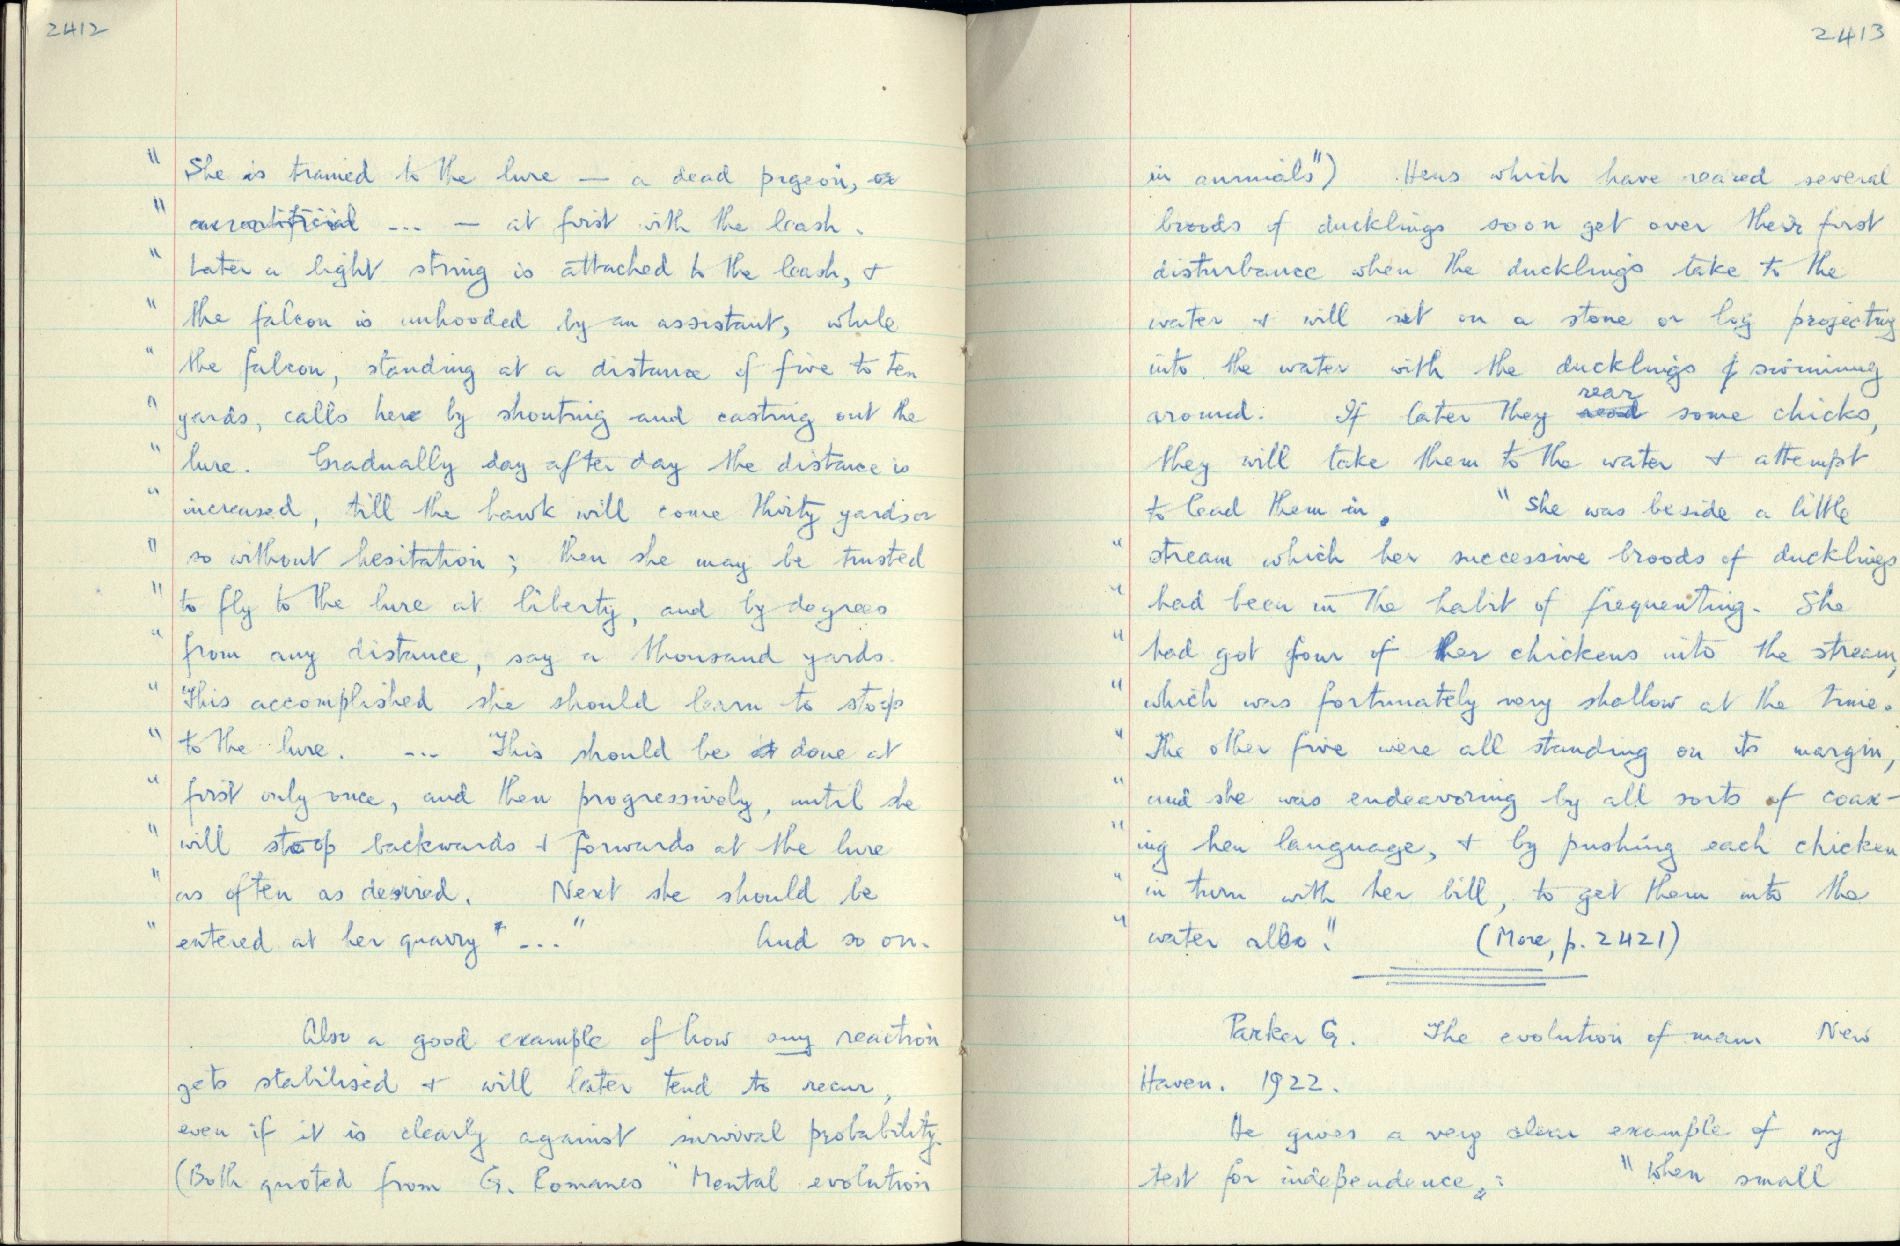 2412
" She is trained to the lure — a dead pigeon, or
" an artificial ... — at first with the leash.
" Later a light string is attached to the leash, &
" the falcon is unhooded by an assistant, while
" the falcon, standing at a distance of five to ten
" yards, calls here by shouting and casting out the
" lure. Gradually day after day the distance is
" increased, till the hawk will come thirty yards or
" so without hesitation; then she may be trusted
" to fly to the lure at liberty, and by degrees
" from any distance, say a thousand yards.
" This accomplished she should learn to stoop
" to the lure. ... This should be at done at
" first only once, and then progressively, until she
" will stoop backwards & forwards at the lure
" as often as desired. Next she should be
" entered at her quarry" ..." And so on.
Also a good example of how any reaction
gets stabilised & will later tend to recur,
even if it is clearly against survival probability.
(Both quoted from G. Romanes "Mental evolution
2413
in animals") Hens which have reared several
broods of ducklings soon get over their first
disturbance when the ducklings take to the
water & will sit on a stone or log projecting
into the water with the ducklings swimming
around. If later they rear some chicks,
they will take them to the water & attempt
to lead them in. "She was beside a little
" stream which her successive broods of ducklings
" had been in the habit of frequenting. She
" had got four of her chickens into the stream,
" which was fortunately very shallow at the time.
" The other five were all standing on its margin,
" and she was endeavoring by all sorts of coax-
" ing hen language, & by pushing each chicken
" in turn with her bill, to get them into the
" water also." (More, p. 2421)
Parker G. The evolution of man. New
Haven. 1922.
He gives a very clear example of my
test for independence,: "When small